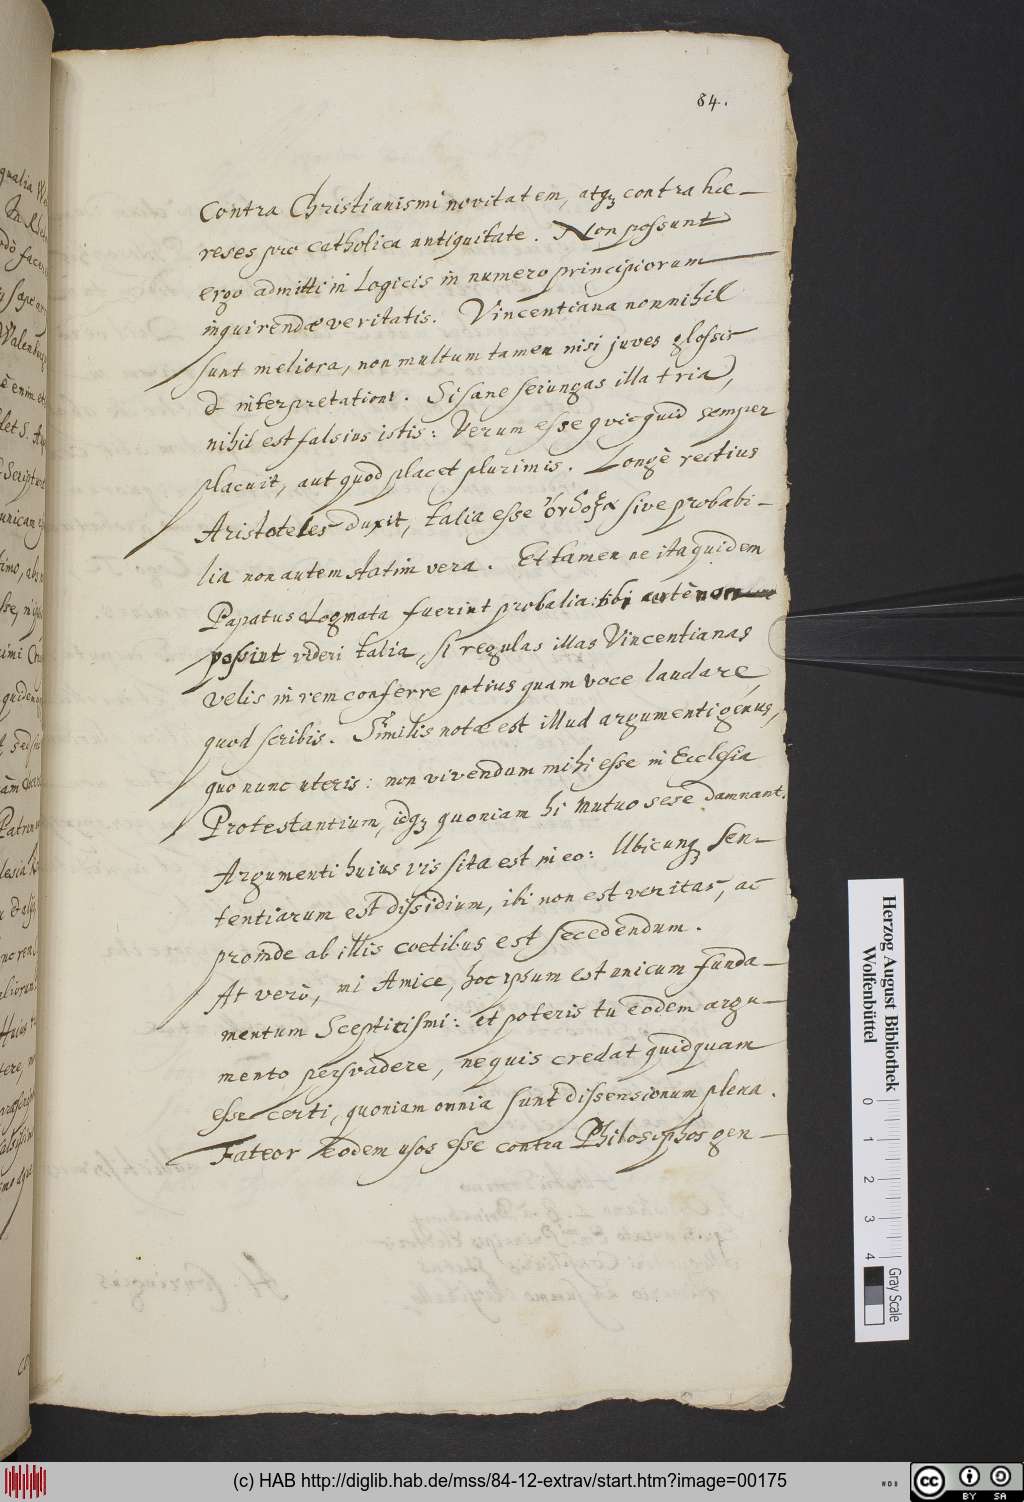 84.
Contra Christianismi novitatem, atqꝫ contra hæ-
reses pro catholica antiquitate. Non possunt
ergo admitti in Logicis in numero principiorum
inquirendæ veritatis. Vincentiana nonnihil
sunt meliora, non multum tamen nisi juves glossis
& interpretationi. Si sane seiungas illa tria,
nihil est falsius istis: Verum esse qvicquid semper
placuit, aut quod placet plurimis. Longè rectius
Aristoteles duxit, talia esse ἔνδοξα sive probabi-
lia non autem statim vera. Et tamen ne ita quidem
Papatus dogmata fuerint probalia: tibi certè non
possint videri talia, si regulas illas Vincentianas
velis in rem conferre potius quam voce laudare,
quod scribis. Similis notæ est illud argumenti genus,
quo nunc uteris: non vivendum mihi esse in Ecclesia
Protestantium, idqꝫ quoniam hi mutuo sese damnant.
Argumenti huius vis sita est in eo: Ubicunqꝫ sen-
tentiarum est dissidium, ibi non est veritas, ac
proinde ab illis coetibus est secedendum.
At verò, mi Amice, hoc ipsum est unicum funda-
mentum Scepticismi: et poteris tu eodem argu-
mento persvadere, nequis credat quidquam
esse certi, quoniam omnia sunt dissensionum plena.
Fateor eodem usos esse contra Philosophos gen-
Herzog August Bibliothek
Wolfenbüttel
0 1 2 3 4
Gray Scale
(c) HAB http://diglib.hab.de/mss/84-12-extrav/start.htm?image=00175
cc BY SA